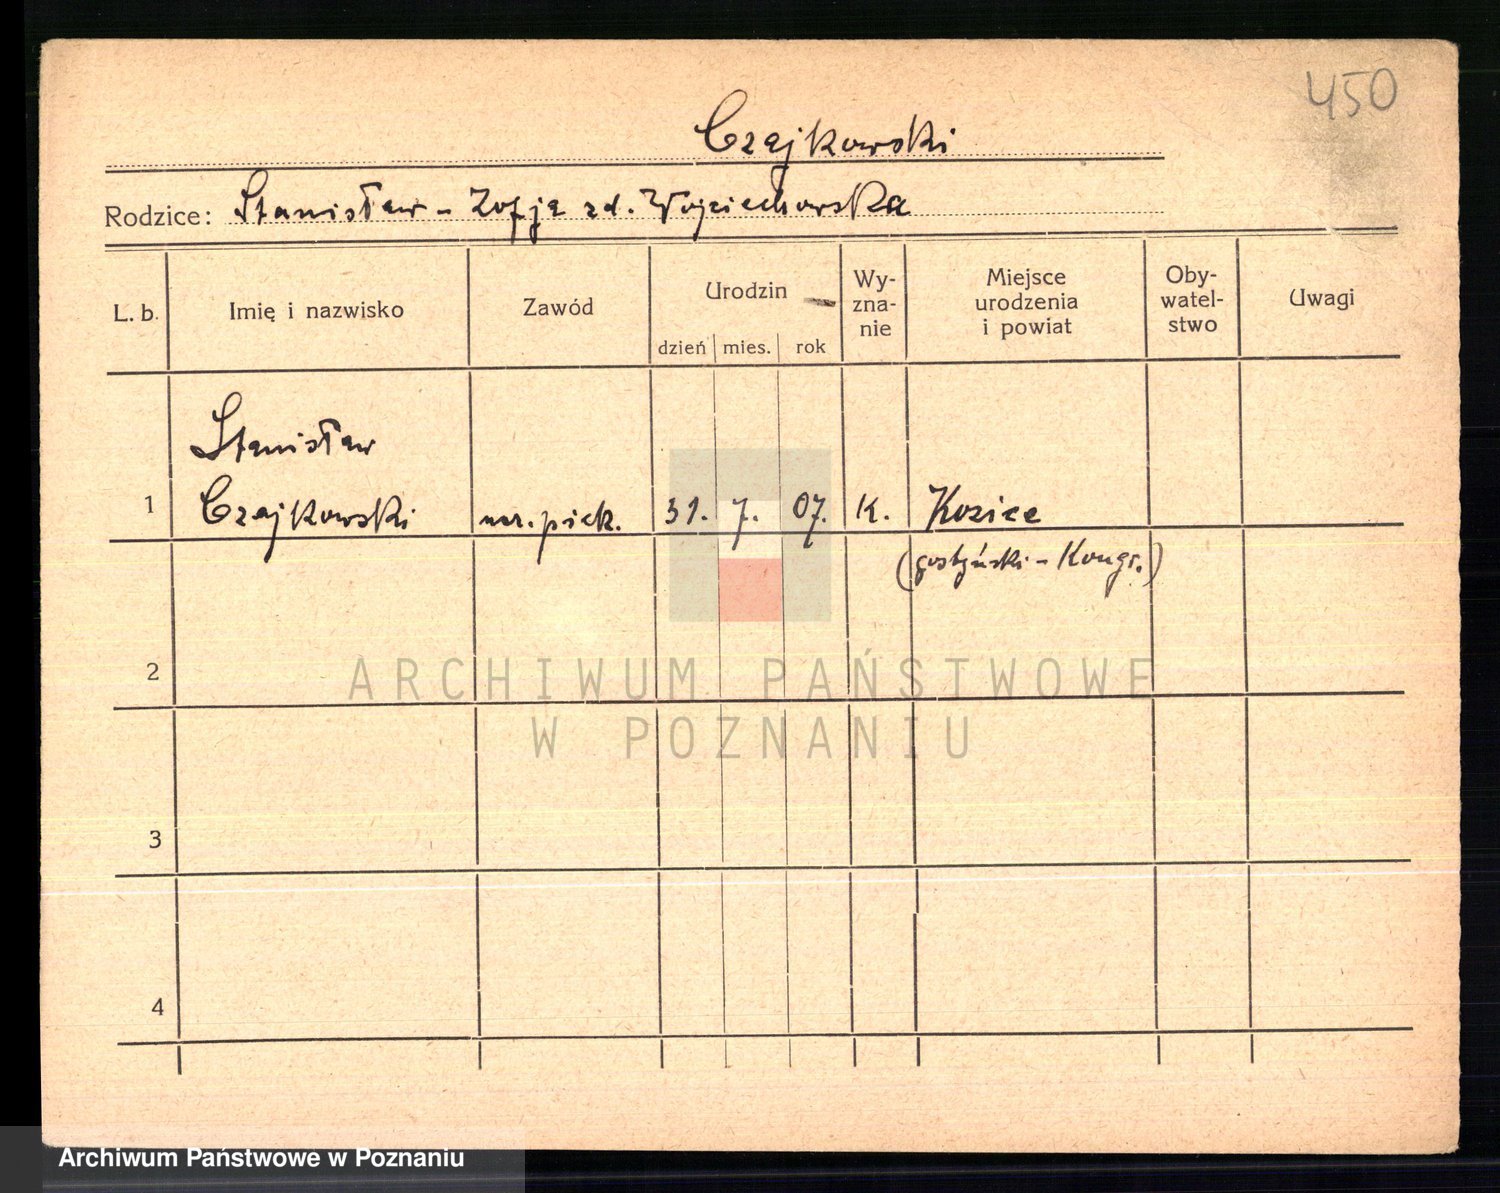 450
Czajkowski
Rodzice: Stanisław - Zofja zd. Wojciechowska
L. b. Imię i nazwisko Zawód Urodzin dzień mies. rok Wy-zna-nie Miejsce urodzenia i powiat Oby-watel-stwo Uwagi
Stanisław
1 Czajkowski piek. 31. 7. 07. K. Kozice
(gostyński - Kongr.)
2
ARCHIWUM PAŃSTWOWE
W POZNANIU
3
4
Archiwum Państwowe w Poznaniu